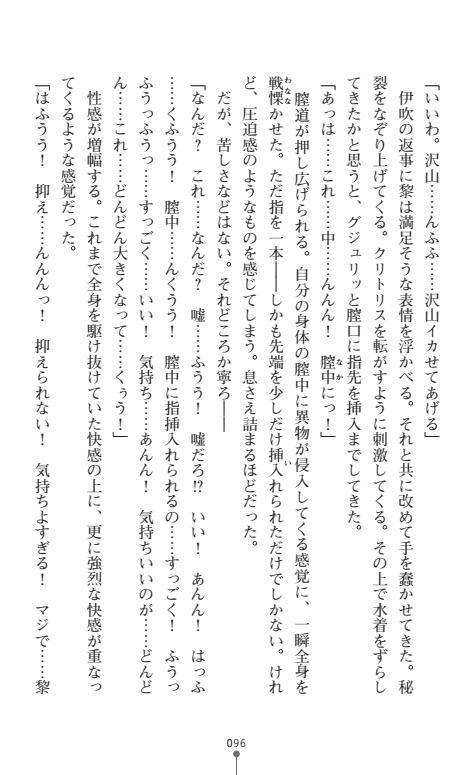 「いいわ。沢山……んふふ……沢山イカせてあげる」
伊吹の返事に黎は満足そうな表情を浮かべる。それと共に改めて手を蠢かせてきた。秘
裂をなぞり上げてくる。クリトリスを転がすように刺激してくる。その上で水着をずらし
てきたかと思うと、グジュリッと膣口に指先を挿入までしてきた。
なか
「あっは……これ……中……んんん！　膣中にっ！」
膣道が押し広げられる。自分の身体の膣中に異物が侵入してくる感覚に、一瞬全身を
わなな
い
戦慄かせた。ただ指を一本――しかも先端を少しだけ挿入れられただけでしかない。けれ
ど、圧迫感のようなものを感じてしまう。息さえ詰まるほどだった。
だが、苦しさなどはない。それどころか寧ろ――
「なんだ？　これ……なんだ？　嘘……ふうう！　嘘だろ!?　いい！　あんん！　はっふ
……くふうう！　膣中……んくうう！　膣中に指挿入れられるの……すっごく！　ふうっ
ふうっふうっ……すっごく……いい！　気持ち……あんん！　気持ちいいのが……どんど
ん……これ……どんどん大きくなって……くぅう！」
性感が増幅する。これまで全身を駆け抜けていた快感の上に、更に強烈な快感が重なっ
てくるような感覚だった。
「はふうう！　抑え……んんんっ！　抑えられない！　気持ちよすぎる！　マジで……黎
096